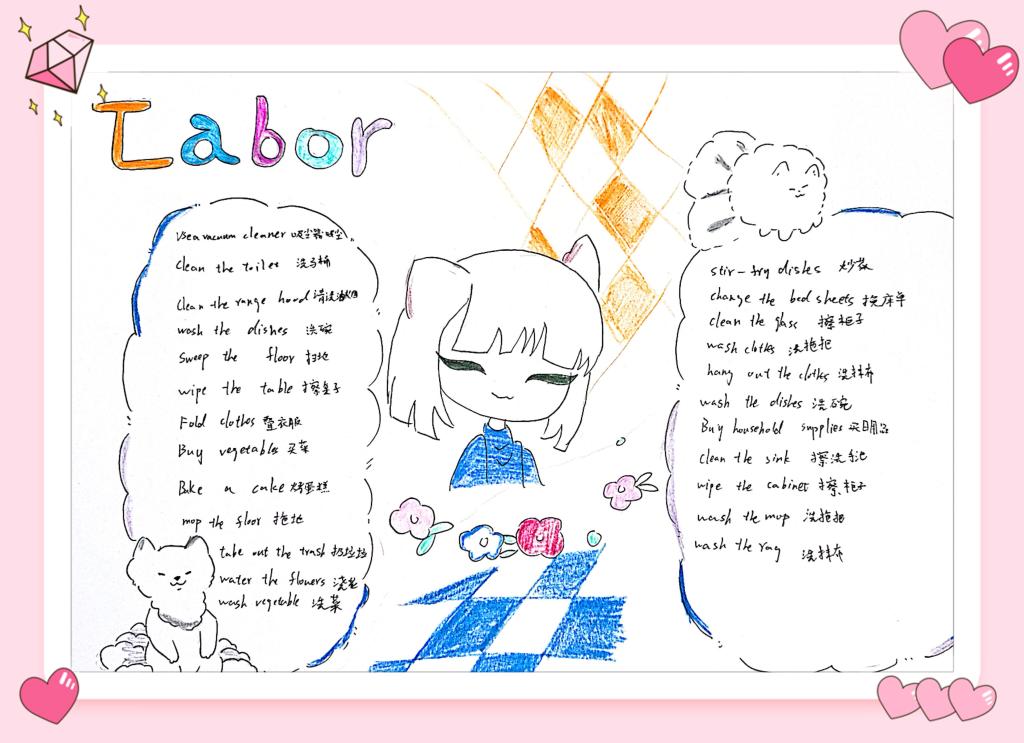 Labor
Use a vacuum cleaner 吸尘器吸尘
clean the toilet 洗马桶
Clean the range hood 清洗油烟
wash the dishes 洗碗
Sweep the floor 扫地
wipe the table 擦桌子
Fold clothes 叠衣服
Buy vegetables 买菜
Bake a cake 烤蛋糕
mop the floor 拖地
take out the trash 扔垃圾
water the flowers 浇花
wash vegetable 洗菜
stir-fry dishes 炒菜
change the bed sheets 换床单
clean the glass 擦柜子
wash clothes 洗拖把
hang out the clothes 洗抹布
wash the dishes 洗碗
Buy household supplies 买日用品
clean the sink 擦洗手池
wipe the cabinet 擦柜子
wash the mop 洗拖把
wash the rag 洗抹布